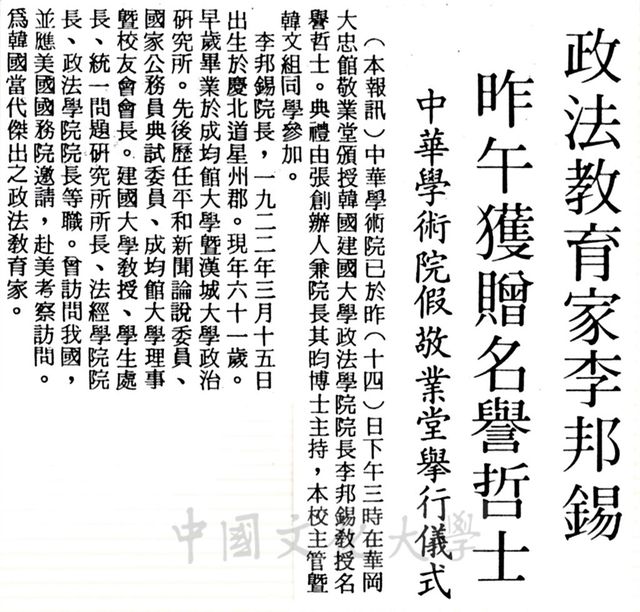 政法教育家李邦錫
昨午獲贈名譽哲士
中華學術院假敬業堂舉行儀式
（本報訊）中華學術院已於昨（十四）日下午三時在華岡
大忠館敬業堂頒授韓國建國大學政法學院院長李邦錫教授名
譽哲士。典禮由張創辦人兼院長其昀博士主持，本校主管暨
韓文組同學參加。
李邦錫院長，一九二二年三月十五日
出生於慶北道星州郡。現年六十一歲。
早歲畢業於成均館大學暨漢城大學政治
研究所。先後歷任平和新聞論說委員、
國家公務員典試委員、成均館大學理事
暨校友會會長。建國大學教授、學生處
長、統一問題研究所所長、法經學院院
長、政法學院院長等職。曾訪問我國，
並應美國國務院邀請，赴美考察訪問。
為韓國當代傑出之政法教育家。
中國文化大學